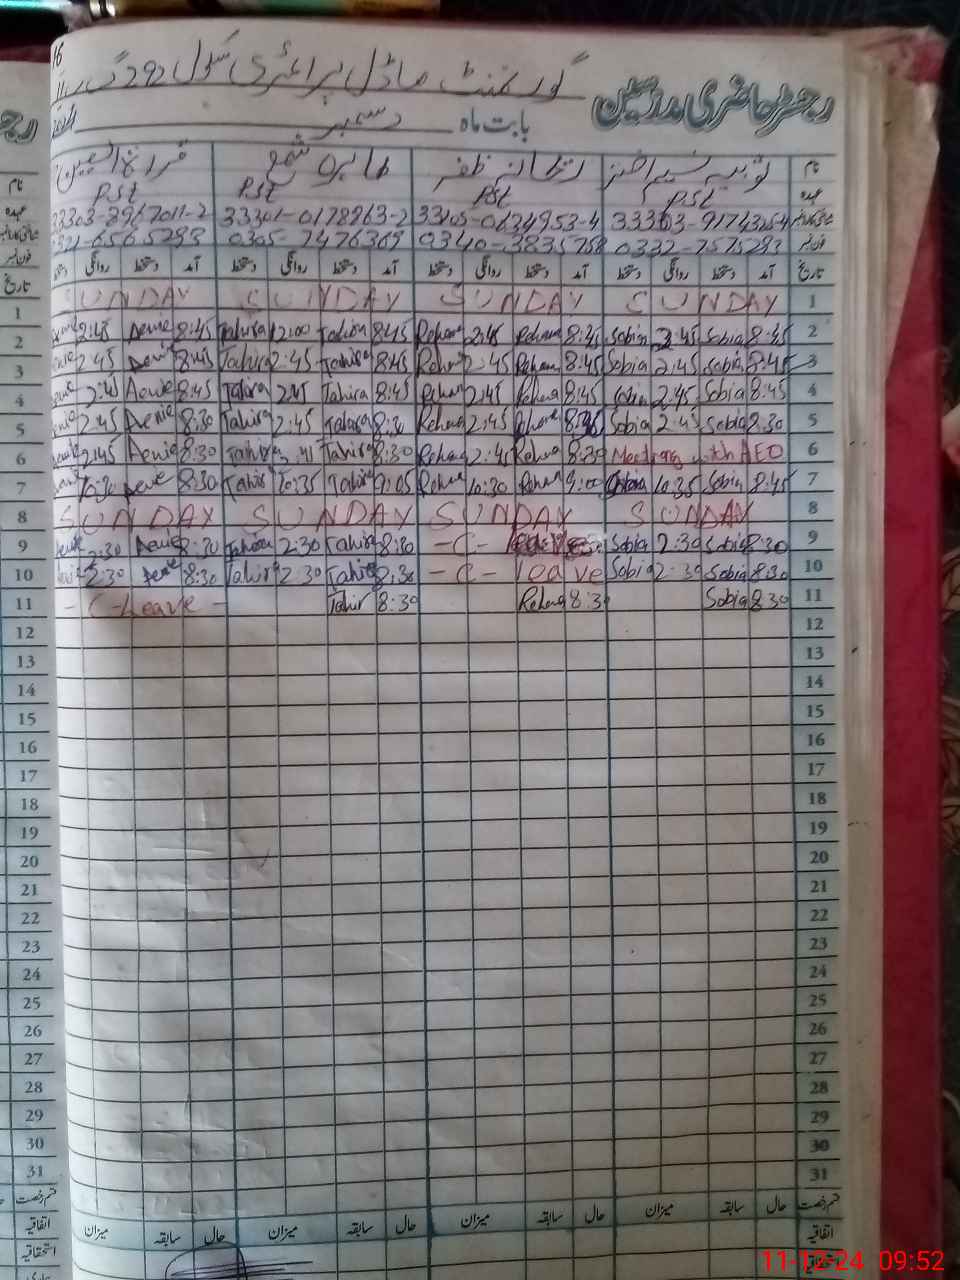 گورنمنٹ ماڈل پرائمری سکول 292 گ ب
رجسٹر حاضری مدرسین
بابت ماہ دسمبر
نام ثوبیہ نسیم اختر ریحانہ ظفر طاہرہ شمع قراۃ العین
عہدہ PST PST PST PST
0634953-4 33301-0178963-2 33303-3967011-2
فون نمبر 0332-7575293 0340-3835758 0305-7476369
تاریخ آمد دستخط روانگی دستخط آمد دستخط روانگی دستخط آمد دستخط روانگی دستخط آمد دستخط روانگی دستخط
SUNDAY SUNDAY SUNDAY SUNDAY 1
2:45 Aenie 8:45 Tahira 12:00 Tahira 8:45 Rehana 2:45 Rehana 8:45 Sobia 2:45 Sobia 8:45 2
2:45 Aenie 8:45 Tahira 2:45 Tahira 8:45 Rehana 2:45 Rehana 8:45 Sobia 2:45 Sobia 8:45 3
2:45 Aenie 8:45 Tahira 2:45 Tahira 8:45 Rehana 2:45 Rehana 8:45 Sobia 2:45 Sobia 8:45 4
2:45 Aenie 8:30 Tahira 2:45 Tahira 8:30 Rehana 2:45 Rehana 8:30 Sobia 2:45 Sobia 8:30 5
2:45 Aenie 8:30 Tahira Tahira 8:30 Rehana 2:45 Rehana 8:30 Meeting with AEO 6
10:30 Aenie 8:30 Tahira 10:35 Tahira 9:05 Rehana 10:30 Rehana 9:00 Sobia 10:35 Sobia 8:45 7
SUNDAY SUNDAY SUNDAY SUNDAY 8
2:30 Aenie 8:30 Tahira 2:30 Tahira 8:30 -C- Sobia 2:30 Sobia 8:30 9
2:30 Aenie 8:30 Tahira 2:30 Tahira 8:30 -C- leave Sobia 2:30 Sobia 8:30 10
- C-Leave - Tahir 8:30 Rehana 8:30 Sobia 8:30 11
12
13
14
15
16
17
18
19
20
21
22
23
24
25
26
27
28
29
30
31
قسم رخصت حال سابقہ میزان حال سابقہ میزان حال سابقہ میزان حال سابقہ میزان
اتفاقیہ
استحقاقیہ
11-12-24 09:52